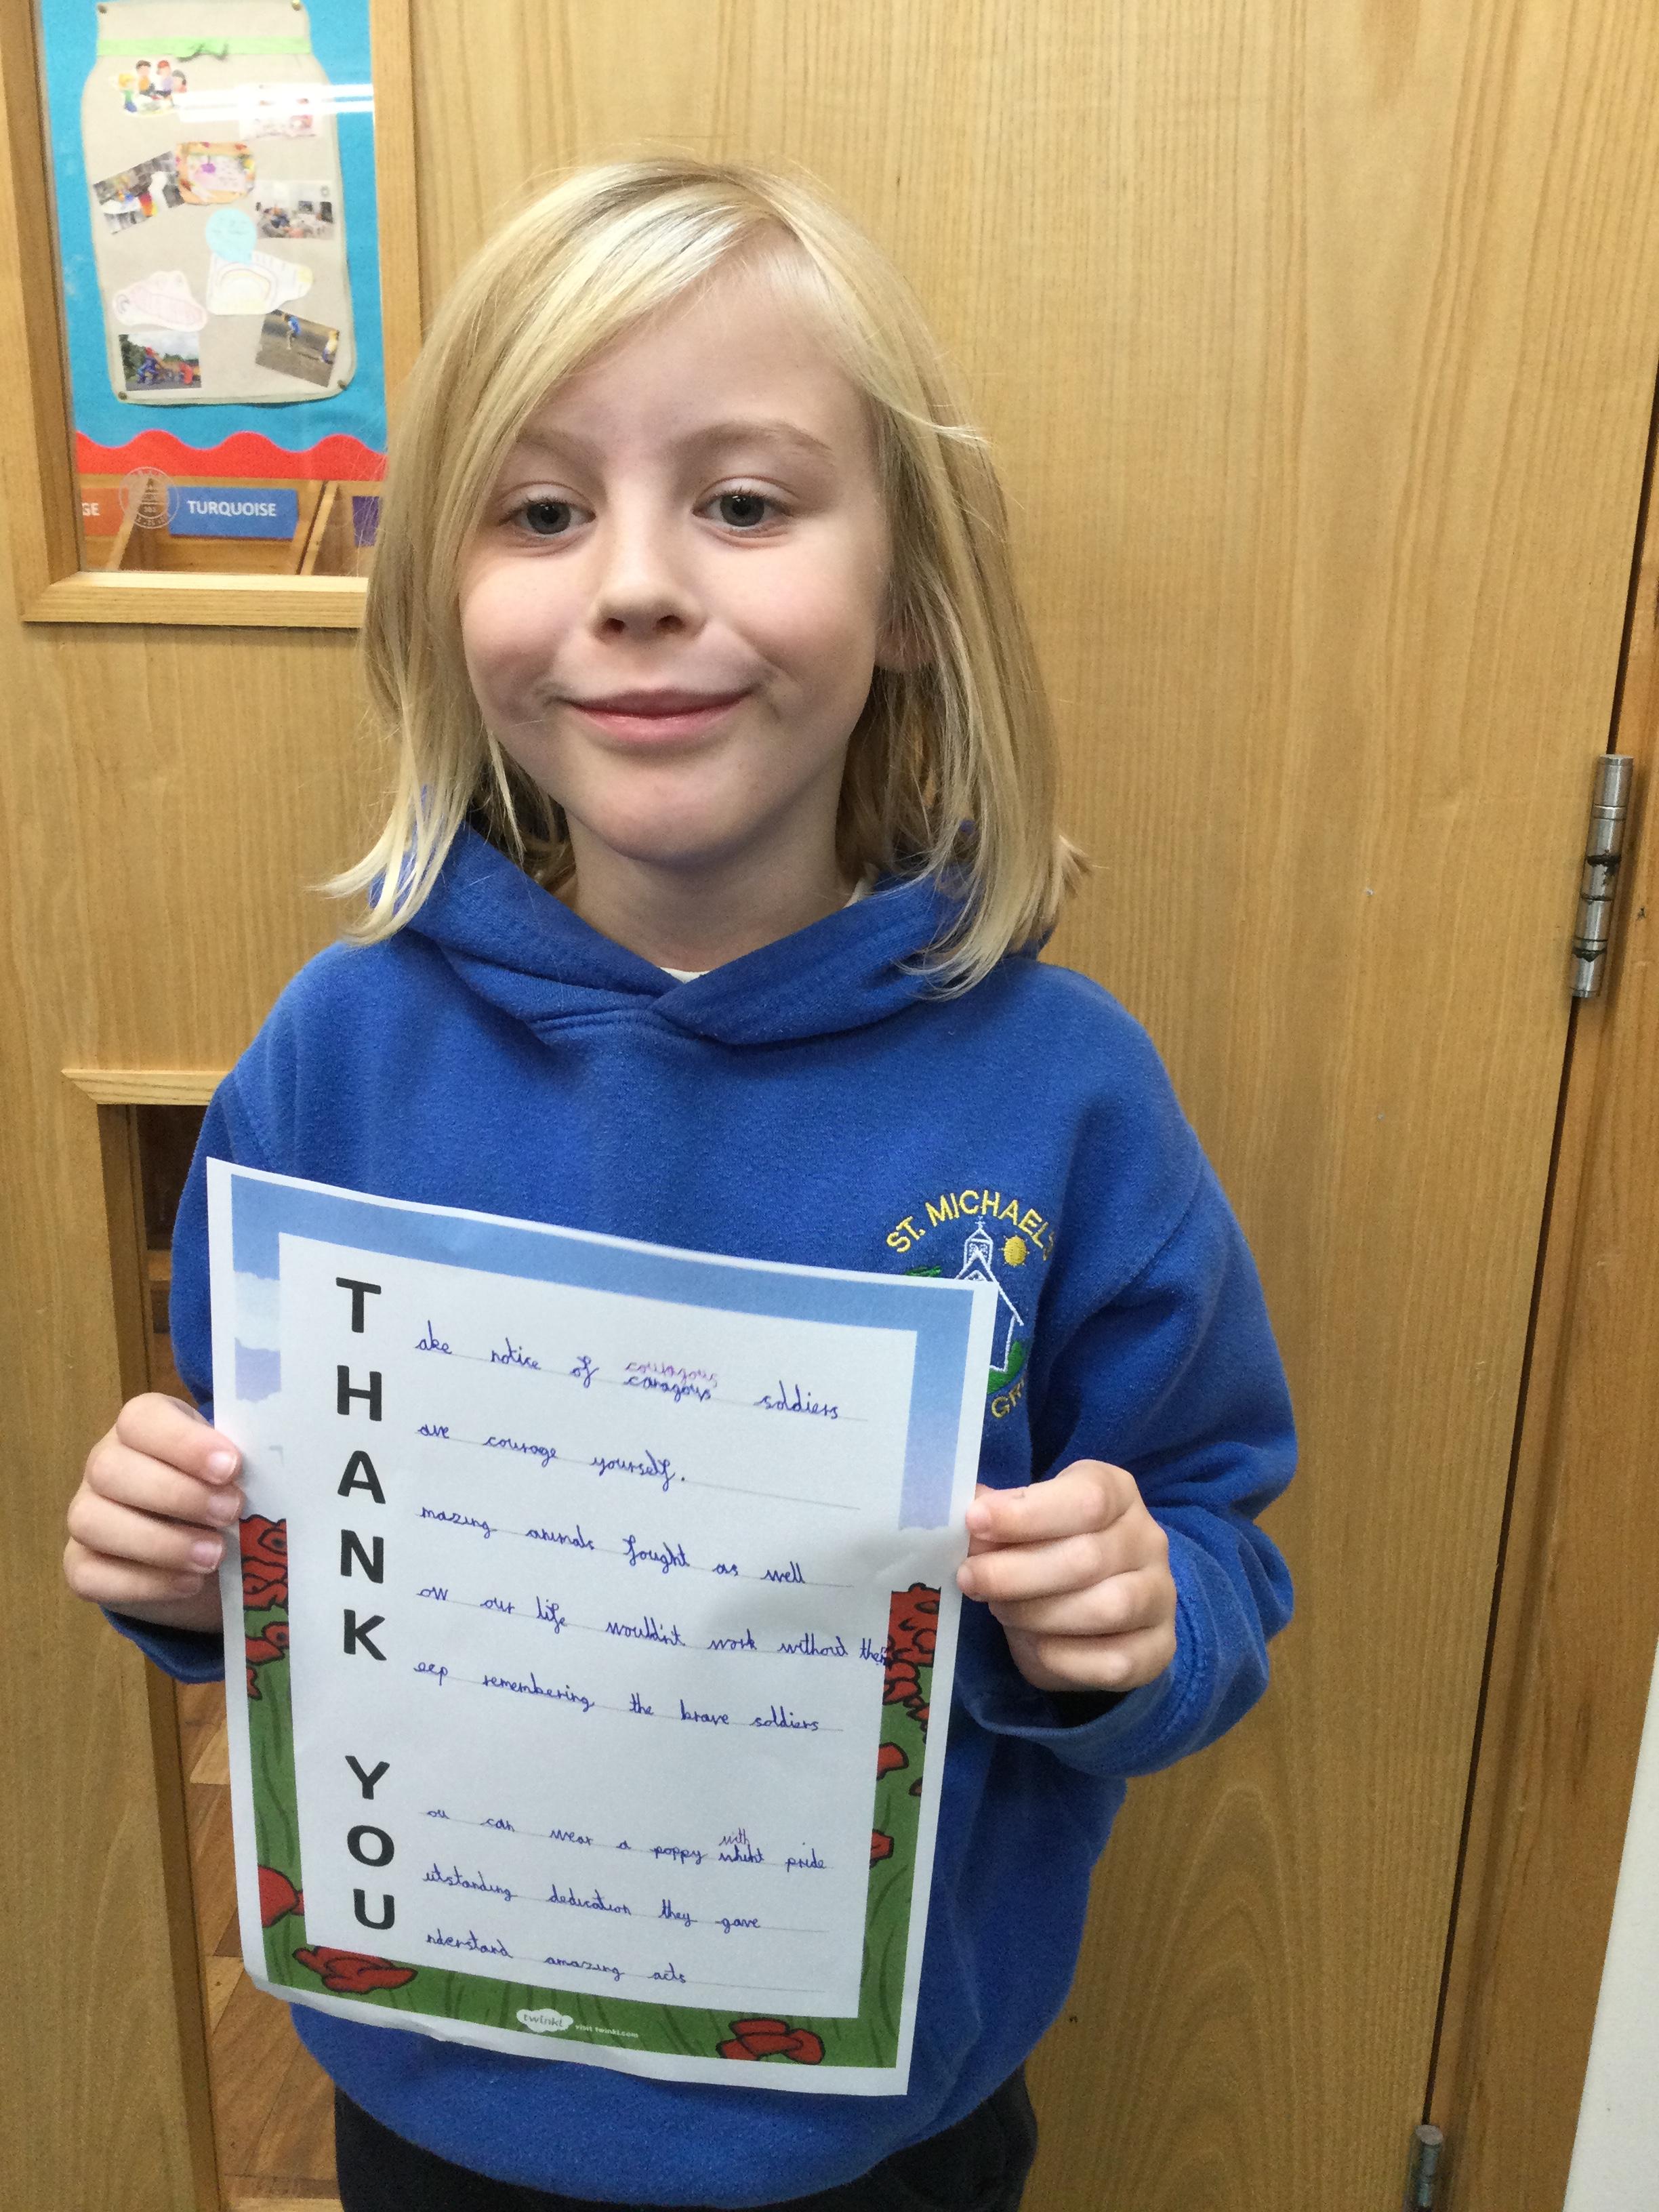 GE
TURQUOISE
ST. MICHAEL'S
GR
Take notice of caragous soldiers
couragous
Have courage yourself.
Amazing animals fought as well
Now our life wouldn't work without them
Keep remembering the brave soldiers
You can wear a poppy pride
with
Outstanding dedication they gave
Understand amazing acts
twinkl visit twinkl.com